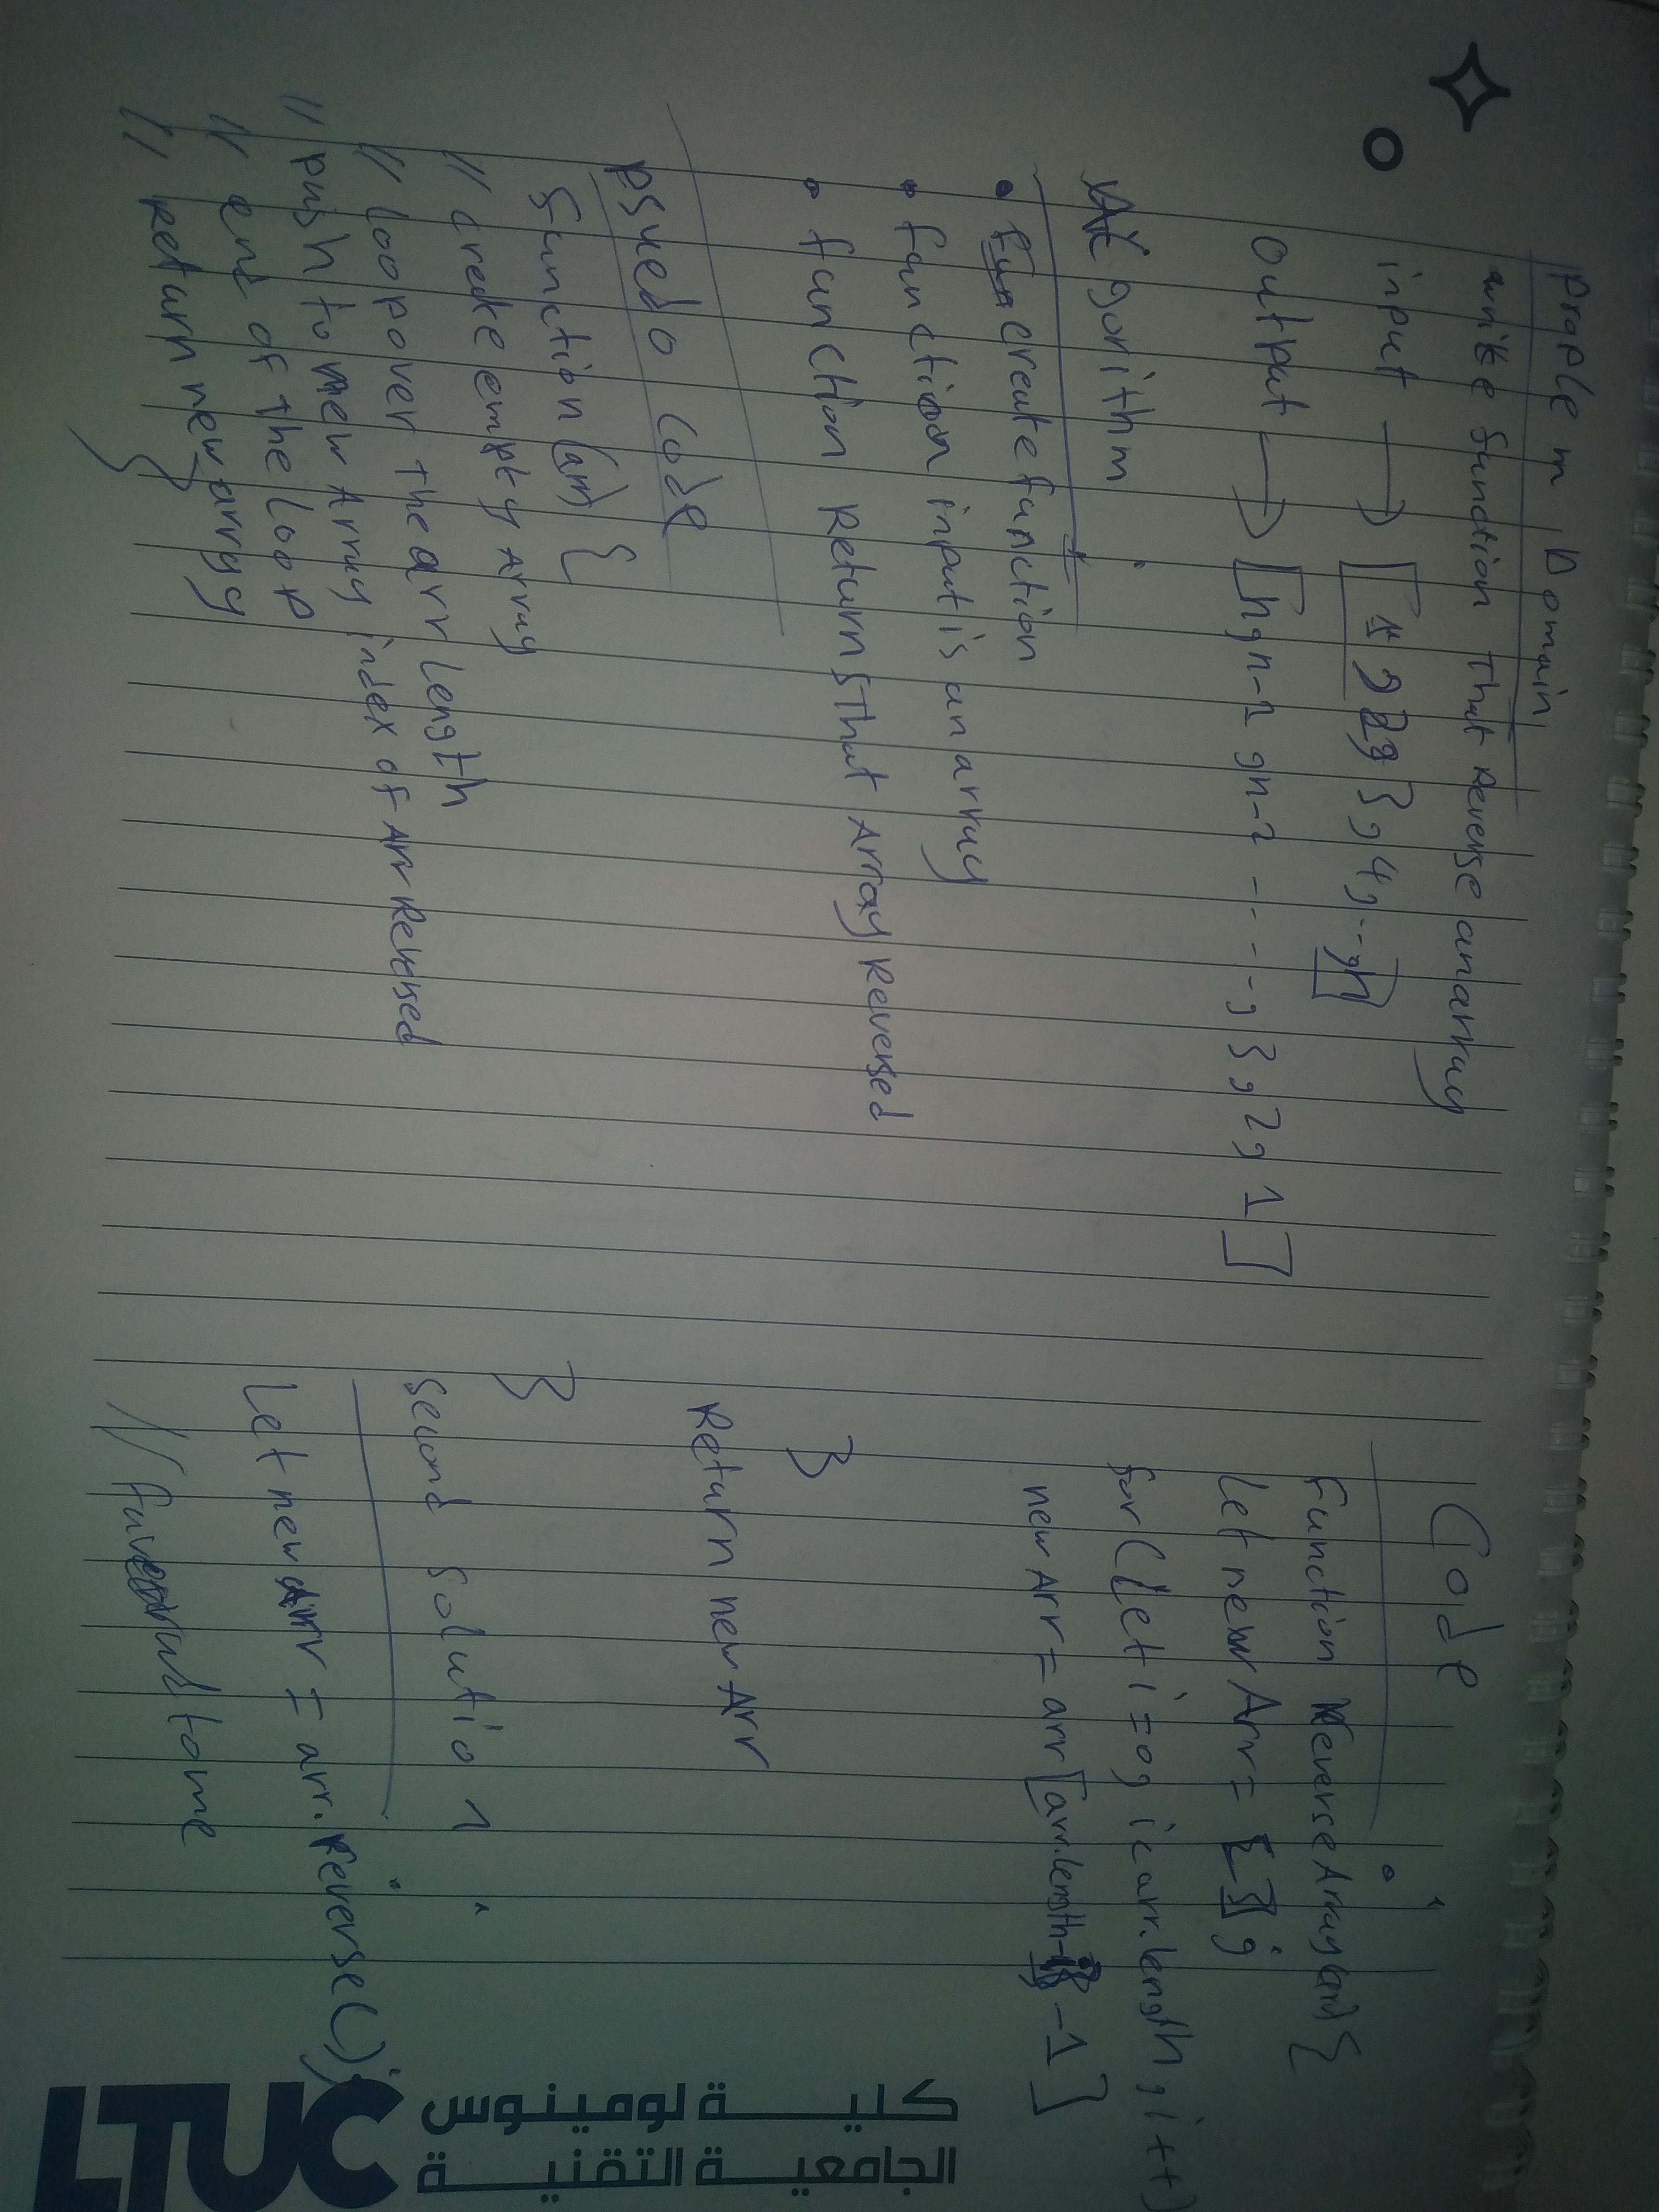 Prople m Domain
write function that Reverse an array
input → [1, 2, 3, 4, ..., n]
Output → [n, n-1, n-2 - - - -, 3, 2, 1]
Algorithm :
• create function
• function input is an array
• function Return that Array Reversed
Psuedo Code
function (arr) {
// create empty array
// loop over the arr length
// push to new Array index of Arr Reversed
// end of the loop
// Return new array
}
Code :
function ReverseArray (arr) {
Let newArr = [];
for (Let i=0; i<arr.length; i++)
newArr = arr [arr.length -1]
}
Return newArr
}
Second Solution :
Let newArr = arr.Reverse();
// to me
كلية لومينوس
الجامعية التقنية
LTUC